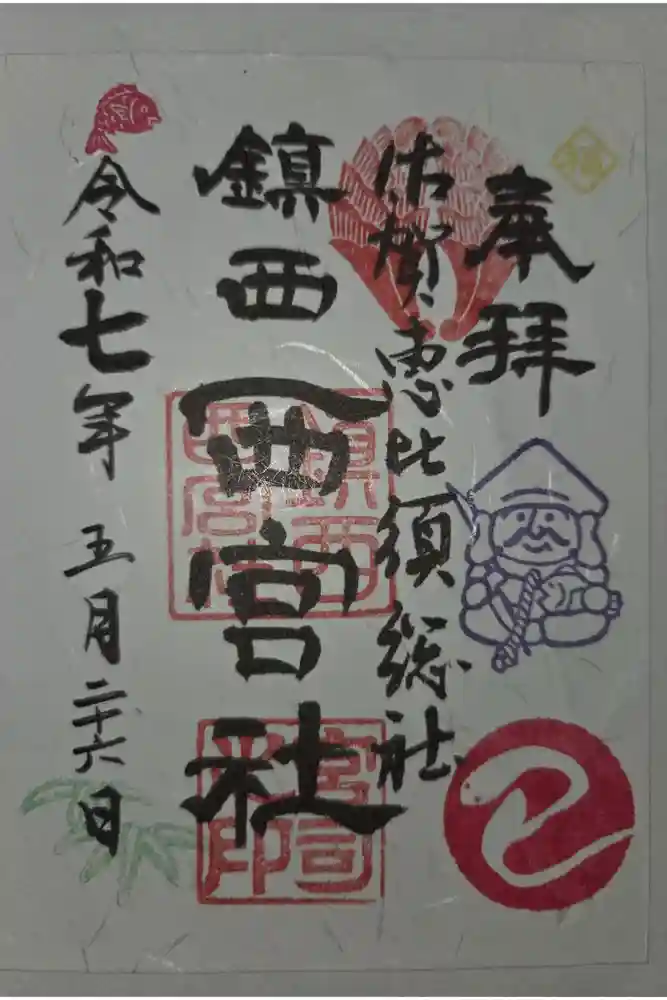 奉拝
佐賀恵比須総社
鎮西西宮社
令和七年 五月二十六日
鎮西
西宮社
宮司
之印